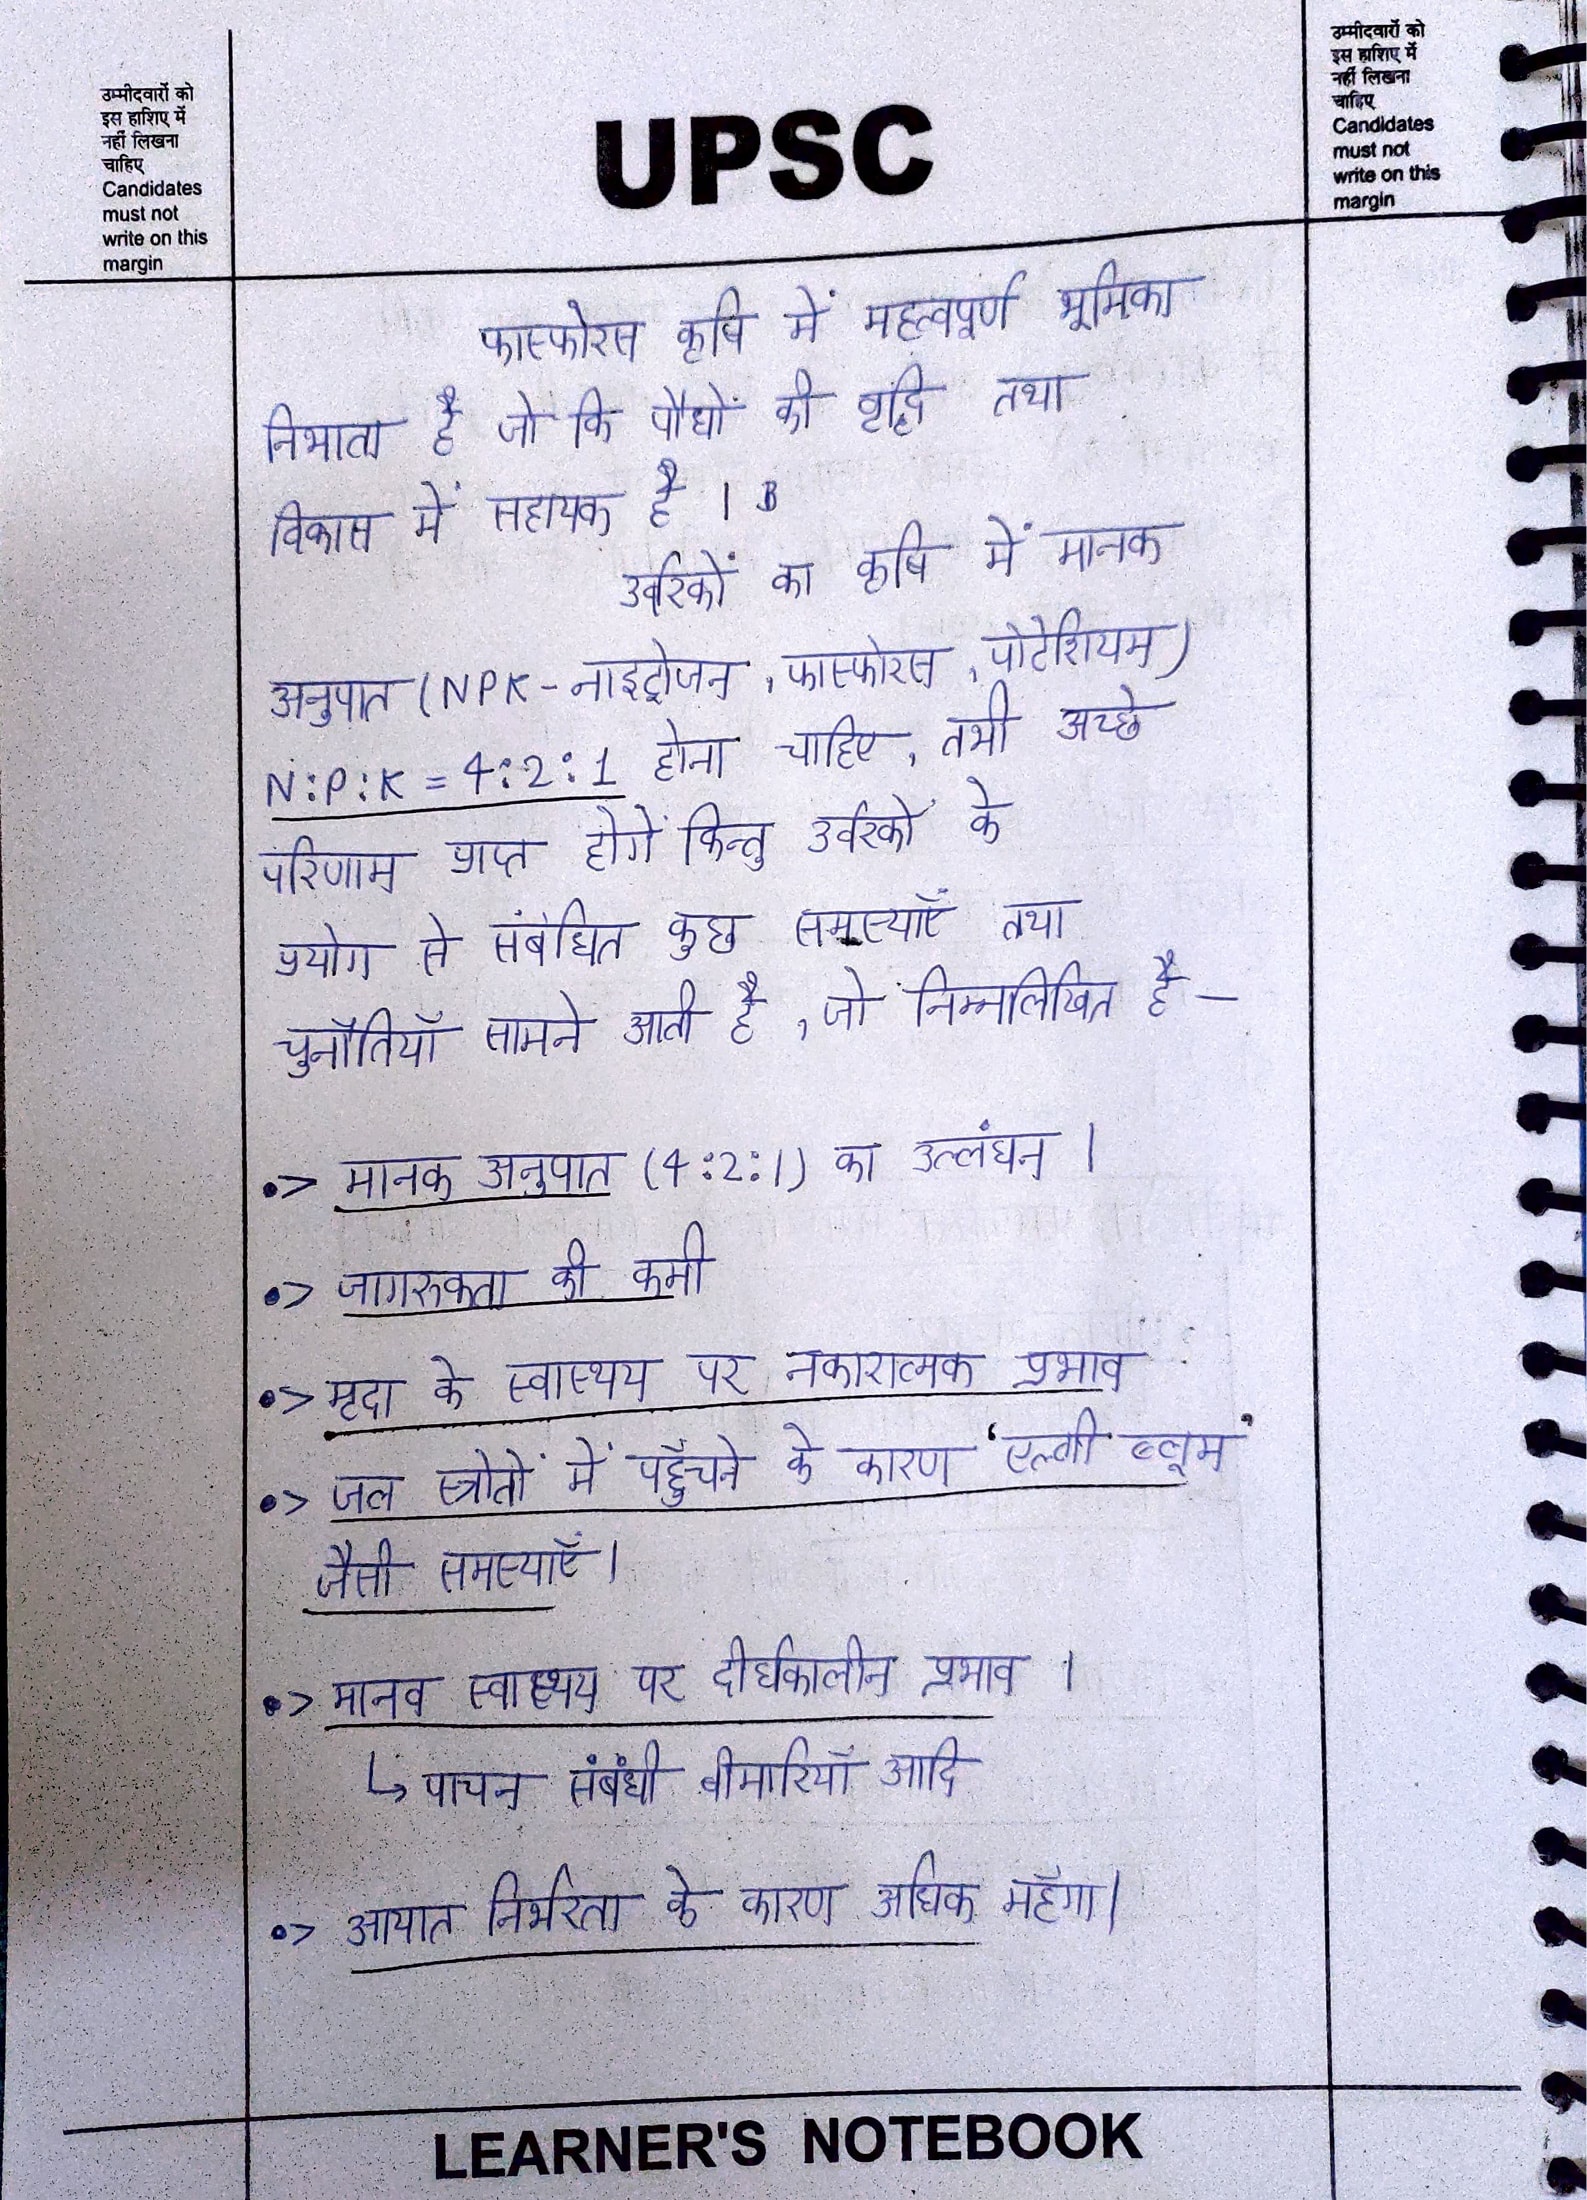 उम्मीदवारों को
इस हाशिए में
नहीं लिखना
चाहिए
Candidates
must not
write on this
margin
UPSC
उम्मीदवारों को
इस हाशिए में
नहीं लिखना
चाहिए
Candidates
must not
write on this
margin
फास्फोरस कृषि में महत्वपूर्ण भूमिका
निभाता है जो कि पौधों की वृद्धि तथा
विकास में सहायक है ।
उर्वरकों का कृषि में मानक
अनुपात (NPK - नाइट्रोजन, फास्फोरस, पोटेशियम)
N:P:K = 4:2:1 होना चाहिए, तभी अच्छे
परिणाम प्राप्त होगें किन्तु उर्वरकों के
प्रयोग से संबंधित कुछ समस्याएँ तथा
चुनौतियाँ सामने आती है, जो निम्नलिखित है –
•> मानक अनुपात (4:2:1) का उल्लंघन ।
•> जागरुकता की कमी
•> मृदा के स्वास्थय पर नकारात्मक प्रभाव
•> जल स्त्रोतों में पहुँचने के कारण 'एल्गी ब्लूम'
जैसी समस्याएँ।
•> मानव स्वास्थय पर दीर्घकालीन प्रभाव ।
↳ पाचन संबंधी बीमारियाँ आदि
•> आयात निर्भरता के कारण अधिक महँगा।
LEARNER'S NOTEBOOK